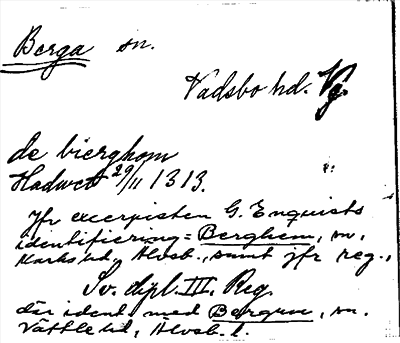 Berga sn.
Vadsbo hd. Vg.
de bierghom
Hadwed 29/11 1313.
Jfr excerpisten G. Enquists
identifiering = Berghem, sn.
Marks hd, Älvsb., samt jfr reg.,
Sv. dipl. III. Reg.
där ident. med Bergum, sn.
Vättle hd, Älvsb. l.